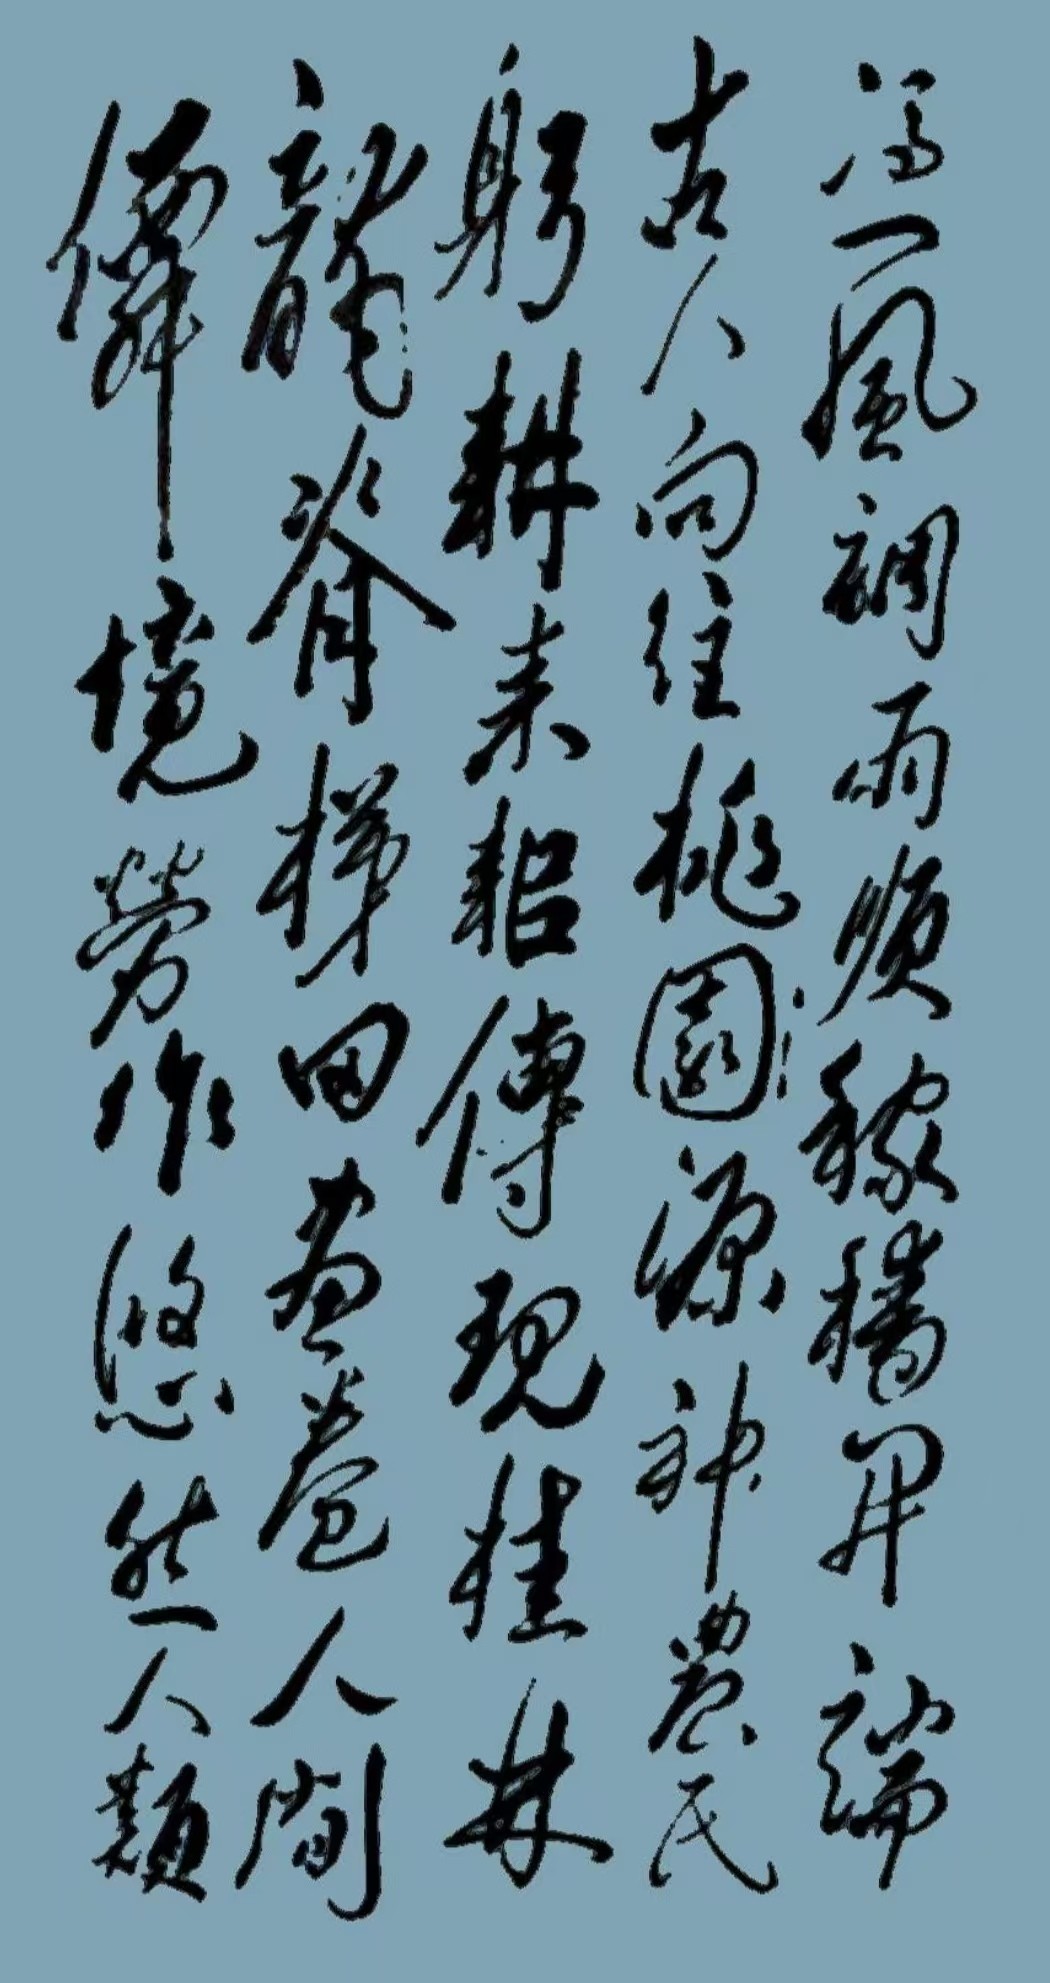 一風調雨順稼穡開端
古人向往桃園源神農民
躬耕耒耜傳現桂林
龍脊梯田畫卷人間
僊境勞作悠然人類